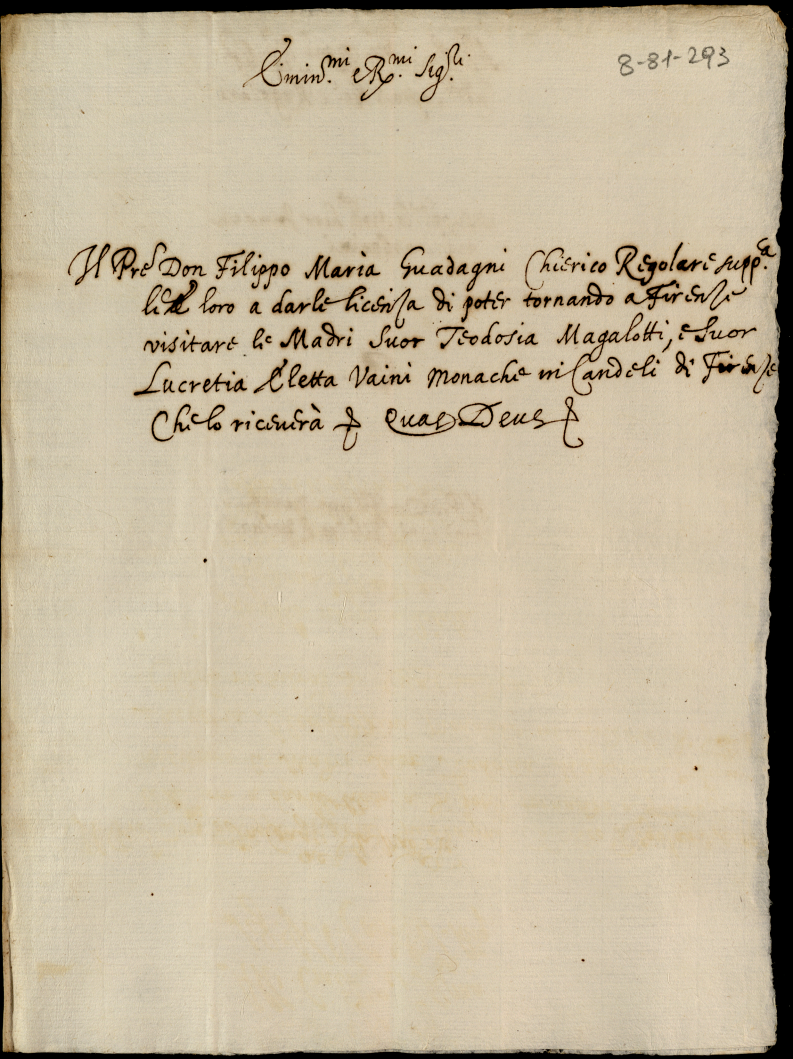 Emin.mi e R.mi Sig.ri
8-81-293
Il Pre Don Filippo Maria Guadagni Chierico Regolare supp.a
le loro a darle licenza di poter tornando a Firenze
visitare le Madri Suor Teodosia Magalotti, e Suor
Lucretia Eletta Vaini Monache in Candeli di Firenze
Che lo riceverà Quas Deus